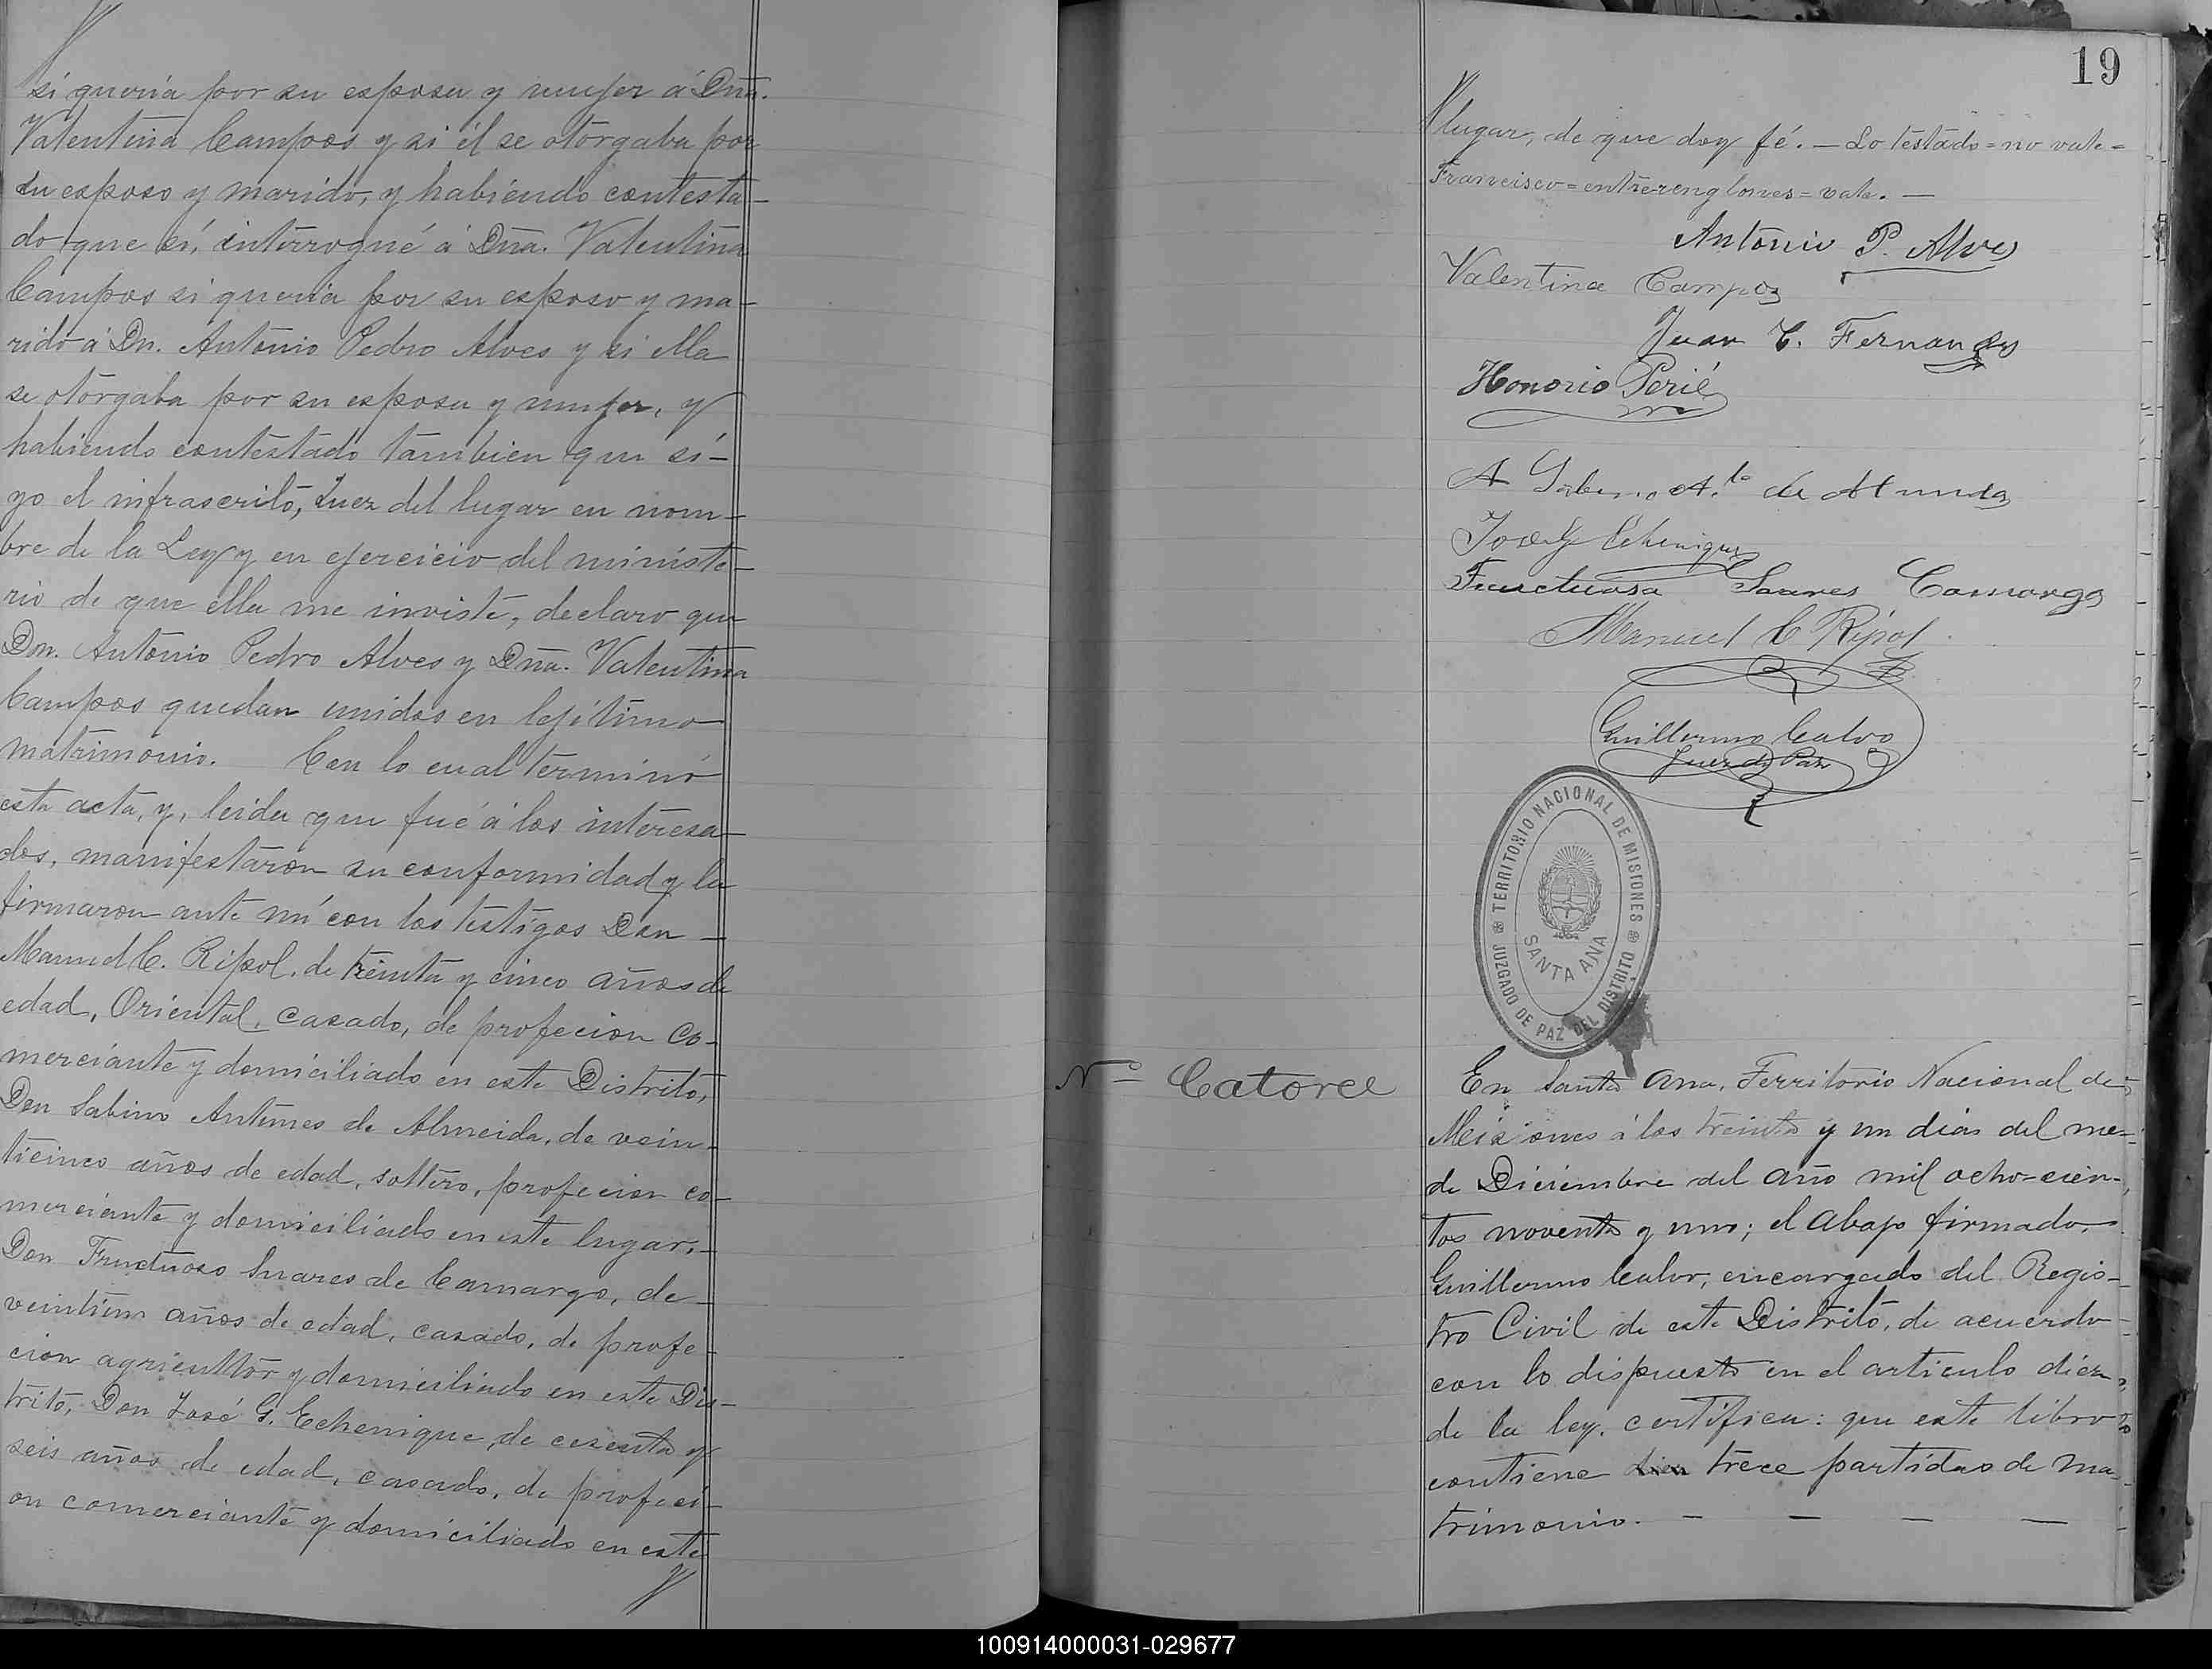 si queria por su esposa y mujer á Dña.
Valentina Campos y si él se otorgaba por
su esposo y marido, y habiendo contesta-
do que sí, interrogué á Dña. Valentina
Campos si queria por su esposo y ma-
rido á Dn. Antonio Pedro Alves y si ella
se otorgaba por su esposa y mujer, y
habiendo contestado tambien que sí-
yo el infrascrito, Juez del lugar en nom-
bre de la Ley y en ejercicio del ministe-
rio de que ella me inviste, declaro que
Don. Antonio Pedro Alves y Dña. Valentina
Campos quedan unidos en lejítimo
matrimonio. Con lo cual terminó
esta acta, y, leida que fué á los interesa-
dos, manifestaron su conformidad y la
firmaron ante mí con los testigos Don
Manuel C. Ripol, de treinta y cinco años de
edad, Oriental, casado, de profecion co-
merciante y domiciliado en este Distrito,
Don Sabino Antunes de Almeida, de vein-
ticinco años de edad, soltero, profecion co-
merciante y domiciliado en este lugar,-
Don Fructuoso Suares de Camargo, de-
veintiun años de edad, casado, de profe-
cion agricultor y domiciliado en este Dis-
trito, Don José G. Echenique, de cesenta y
seis años de edad, casado, de profeci-
on comerciante y domiciliado en este
19
lugar, de que doy fé. - Lo testado = no vale =
Francisco = entrerenglones = vale. -
Antonio P. Alves
Valentina Campos
Juan C. Fernandes
Honorio Perié
A Sabino A.to de Almeida
José G Echenique
Fructuoso Soares Camargo
Manuel C Ripol
Guillermo Calvo
Juez de Paz
TERRITORIO NACIONAL DE MISIONES
SANTA ANA
JUZGADO DE PAZ DEL DISTRITO
Nº Catorce
En Santa Ana, Territorio Nacional de
Misiones á los treinta y un dias del mes
de Diciembre del año mil ocho=cien-
tos noventa y uno; el abajo firmado,
Guillermo Calvo, encargado del Regis-
tro Civil de este Distrito, de acuerdo
con lo dispuesto en el articulo diez
de la ley, certifica: que este libro
contiene trece partidas de ma-
trimonio. - - - -
100914000031-029677